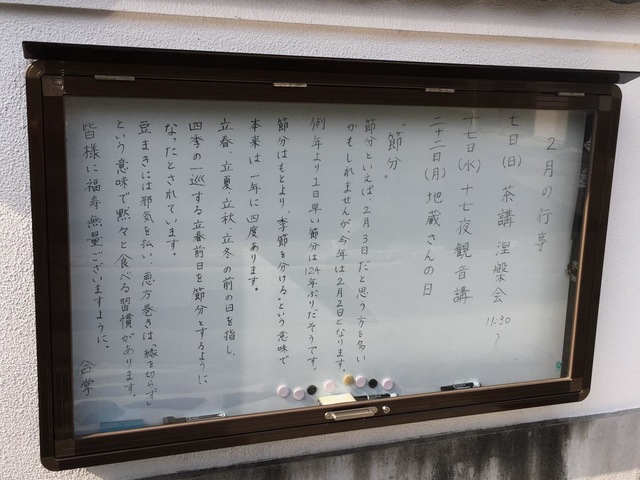 2月の行事
七日(日) 茶講 涅槃会 11:30〜
十七日(水) 十七夜観音講
二十二日(月) 地蔵さんの日
"節分"
節分といえば、2月3日だと思う方も多い
かもしれませんが、今年は2月2日となります。
例年より1日早い節分は124年ぶりだそうです。
節分はもとより、季節を分ける"という意味で
本来は一年に四度あります。
立春、立夏、立秋、立冬の前の日を指し、
四季の一巡する立春前日を節分とするように
なったとされています。
豆まきには邪気を払い、恵方巻きは「縁を切らず」
という意味で黙々と食べる習慣があります。
皆様に福寿無量ございますように。
合掌